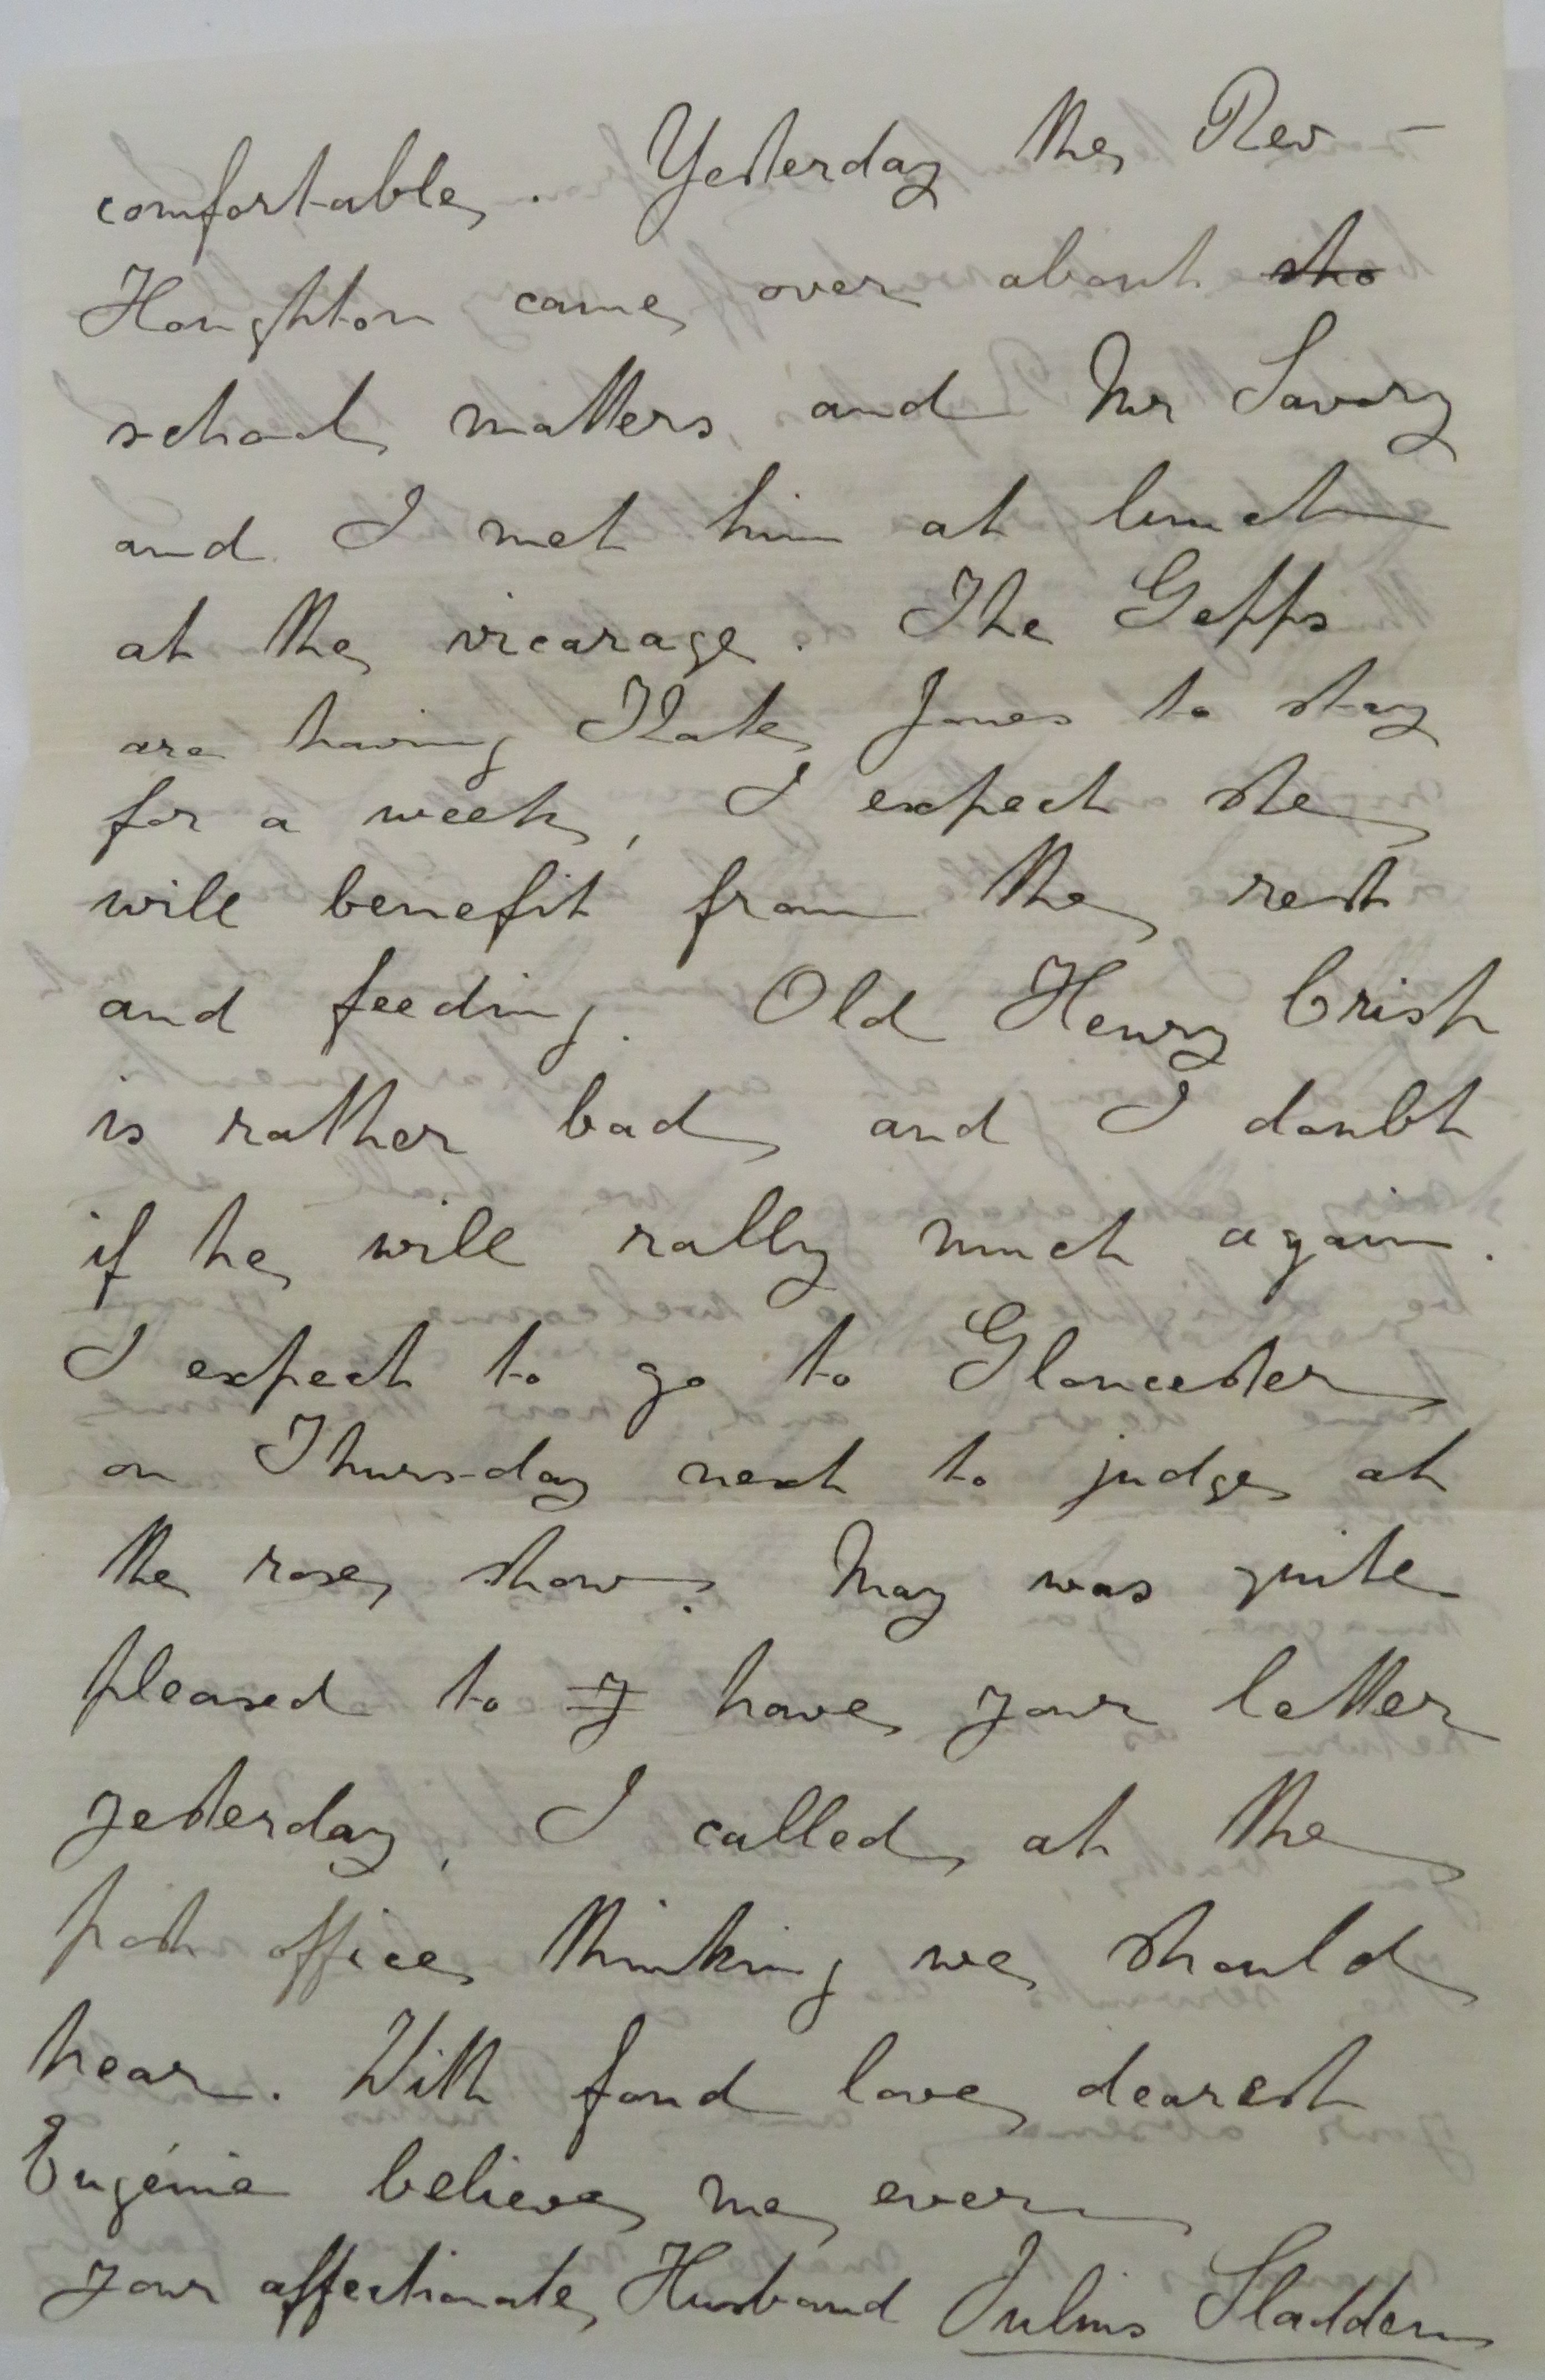 comfortable. Yesterday the Rev –
Houghton came over about ~~sho~~
school matters and Mr Savory
and I met him at lunch
at the vicarage. The Gepps
are having Kate Jones to stay
for a week, I expect she
will benefit from the rest
and feeding. Old Henry Crisp
is rather bad and I doubt
if he will rally much again.
I expect to go to Gloucester
on Thursday next to judge at
the rose show. May was quite
pleased to ~~y~~ have your letter
yesterday, I called at the
post office thinking we should
hear. With fond love dearest
Eugénie believe me ever
your affectionate Husband Julius Sladden